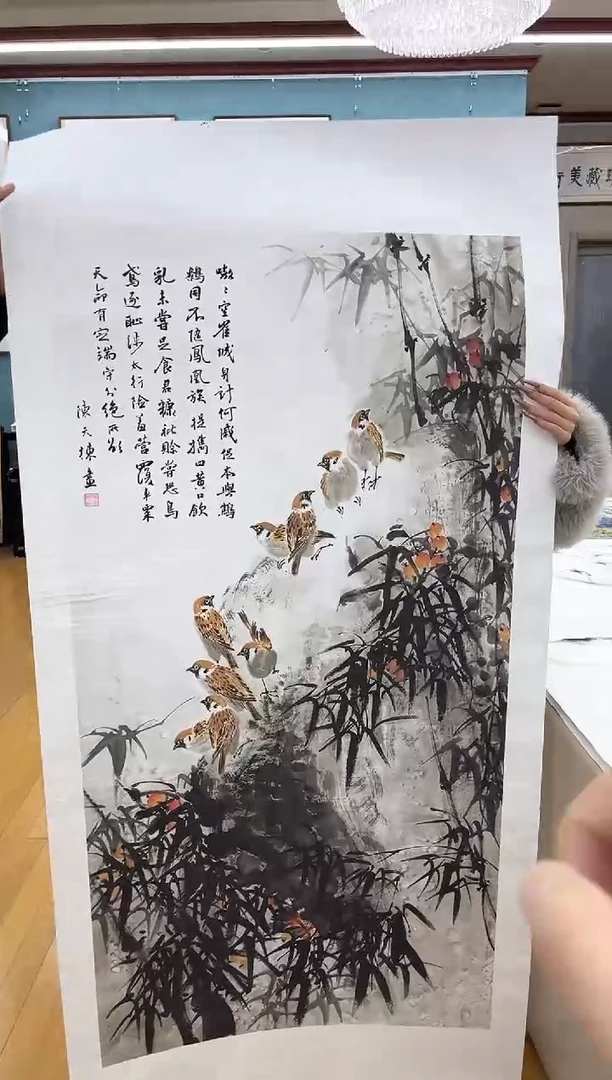 嗷〻空雀城身計何戚促本與鷦
鷯同不隨鳳凰族提攜四黄口飲
乳未嘗足食君糠秕餘嘗恐烏
鳶逐恥涉太行險羞營覆車粟
天命有定端守分絕所欲
陳天棟畫
藏美